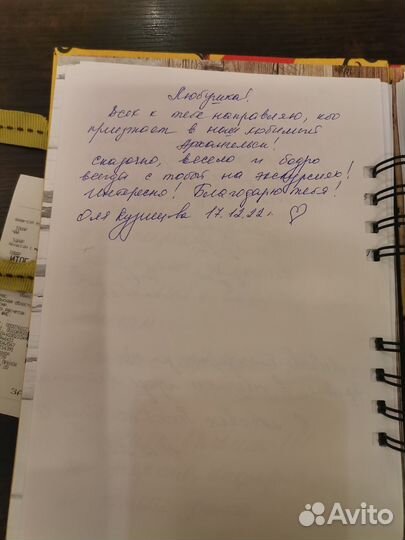 Любушка!
Всех к тебе направляю, кто
приезжает в наш любимый
Архангельск!
Сказочно, весело и бодро
всегда с тобой на экскурсиях!
Интересно! Благодарю тебя!
Оля Кузнецова 17.12.22г. ♡
ИТОГ
Avito